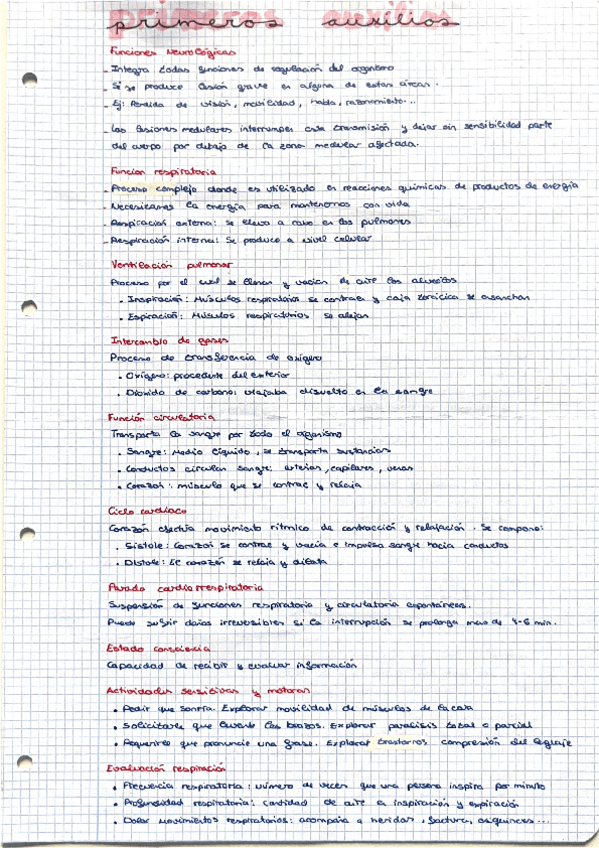 primeros auxilios
Funciones Neurológicas
- Integra todas funciones de regulación del organismo
- Si se produce lesión grave en alguna de estas áreas.
- Ej: Perdida de visión, movilidad, habla, razonamiento...
- Las lesiones medulares interrumpen esta transmisión y dejan sin sensibilidad parte
del cuerpo por debajo de la zona medular afectada.
Funcion respiratoria
- Proceso complejo donde es utilizado en reacciones quimicas de productos de energía
- Necesitamos la energía para mantenernos con vida
- Respiración externa: se lleva a cabo en los pulmones
- Respiración interna: Se produce a nivel celular
Ventilación pulmonar
Proceso por el cual se llenan y vacian de aire los alveolos
• Inspiración: Músculos respiratorios se contrae y caja torácica se ensanchan
• Espiración: Músculos respiratorios se alejan
Intercambio de gases
Proceso de transferencia de oxígeno
• Oxígeno: procedente del exterior
• Dioxido de carbono: viajaba disuelto en la sangre
Función circulatoria
Transporta la sangre por todo el organismo
• Sangre: Medio líquido, se transporta sustancias
• Conductos circulan sangre: arterias, capilares, venas
• Corazón: músculo que se contrae y relaja
Ciclo cardiaco
Corazón efectúa movimiento ritmico de contracción y relajación. Se compone:
• Sistole: Corazón se contrae y vacia e impulsa sangre hacia conductos
• Distole: El corazón se relaja y dilata
Parada cardiorrespiratoria
Suspensión de funciones respiratoria y circulatoria espontáneas.
Puede sufrir daños irreversibles si la interrupción se prolonga mas de 4-6 min.
Estado consciencia
Capacidad de recibir y evaluar información
Actividades sensitivas y motoras
• Pedir que sonria. Explorar movilidad de músculos de la cara
• Solicitarle que levante los brazos. Explorar paralisis total o parcial
• Requerirle que pronuncie una frase. Explorar trastornos compresión del lenguaje
Evaluación respiración
• Frecuencia respiratoria: número de veces que una persona inspira por minuto
• Profundidad respiratoria: cantidad de aire en inspiración y espiración
• Dolor movimientos respiratorios: acompaña a heridas, fractura, esguinces...